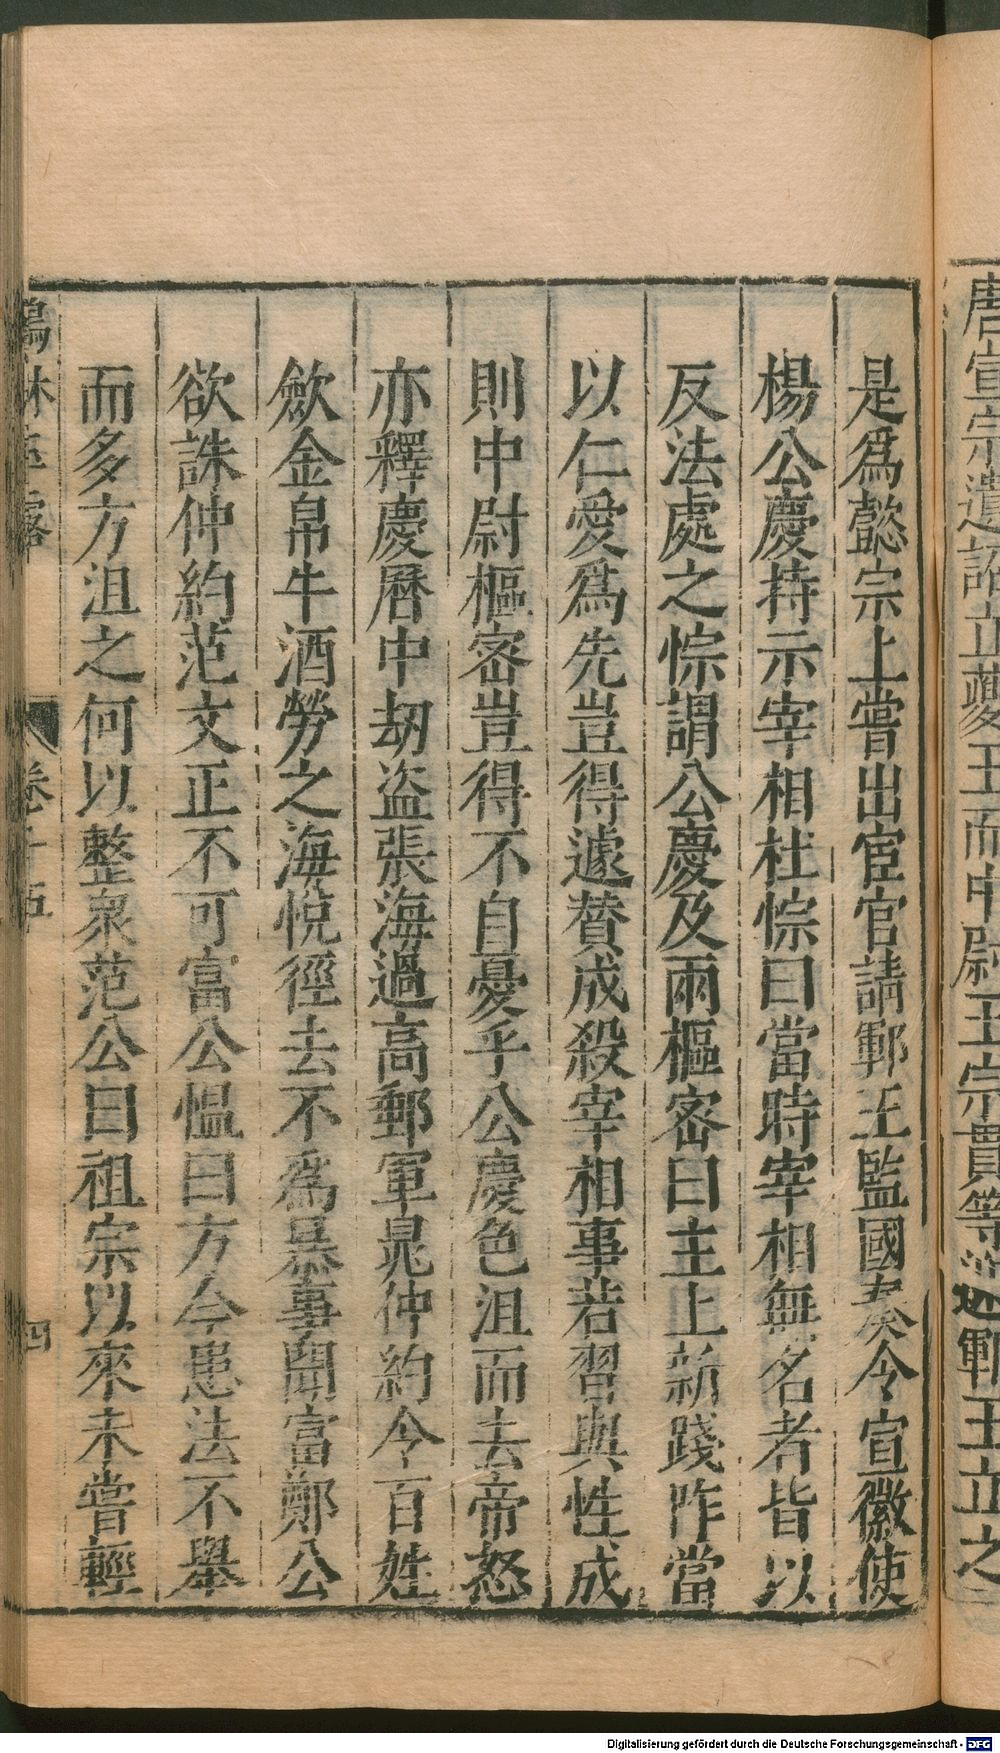 唐宣宗遺詔立夔王而中尉王宗貫等迎鄆王立之
是爲懿宗上嘗出宦官請鄆王監國奏令宣徽使
楊公慶持示宰相杜悰曰當時宰相無名者皆以
反法處之悰謂公慶及兩樞密曰主上新踐阼當
以仁愛爲先豈得遽賛成殺宰相事若習與性成
則中尉樞密豈得不自憂乎公慶色沮而去帝怒
亦釋慶曆中劫盗張海過高郵軍晁仲約令百姓
歛金帛牛酒勞之海悅徑去不爲暴事聞富鄭公
欲誅仲約范文正不可富公慍曰方今患法不舉
而多方沮之何以整衆范公曰祖宗以來未嘗輕
鶴林玉露 卷十五 四
Digitalisierung gefördert durch die Deutsche Forschungsgemeinschaft - DFG